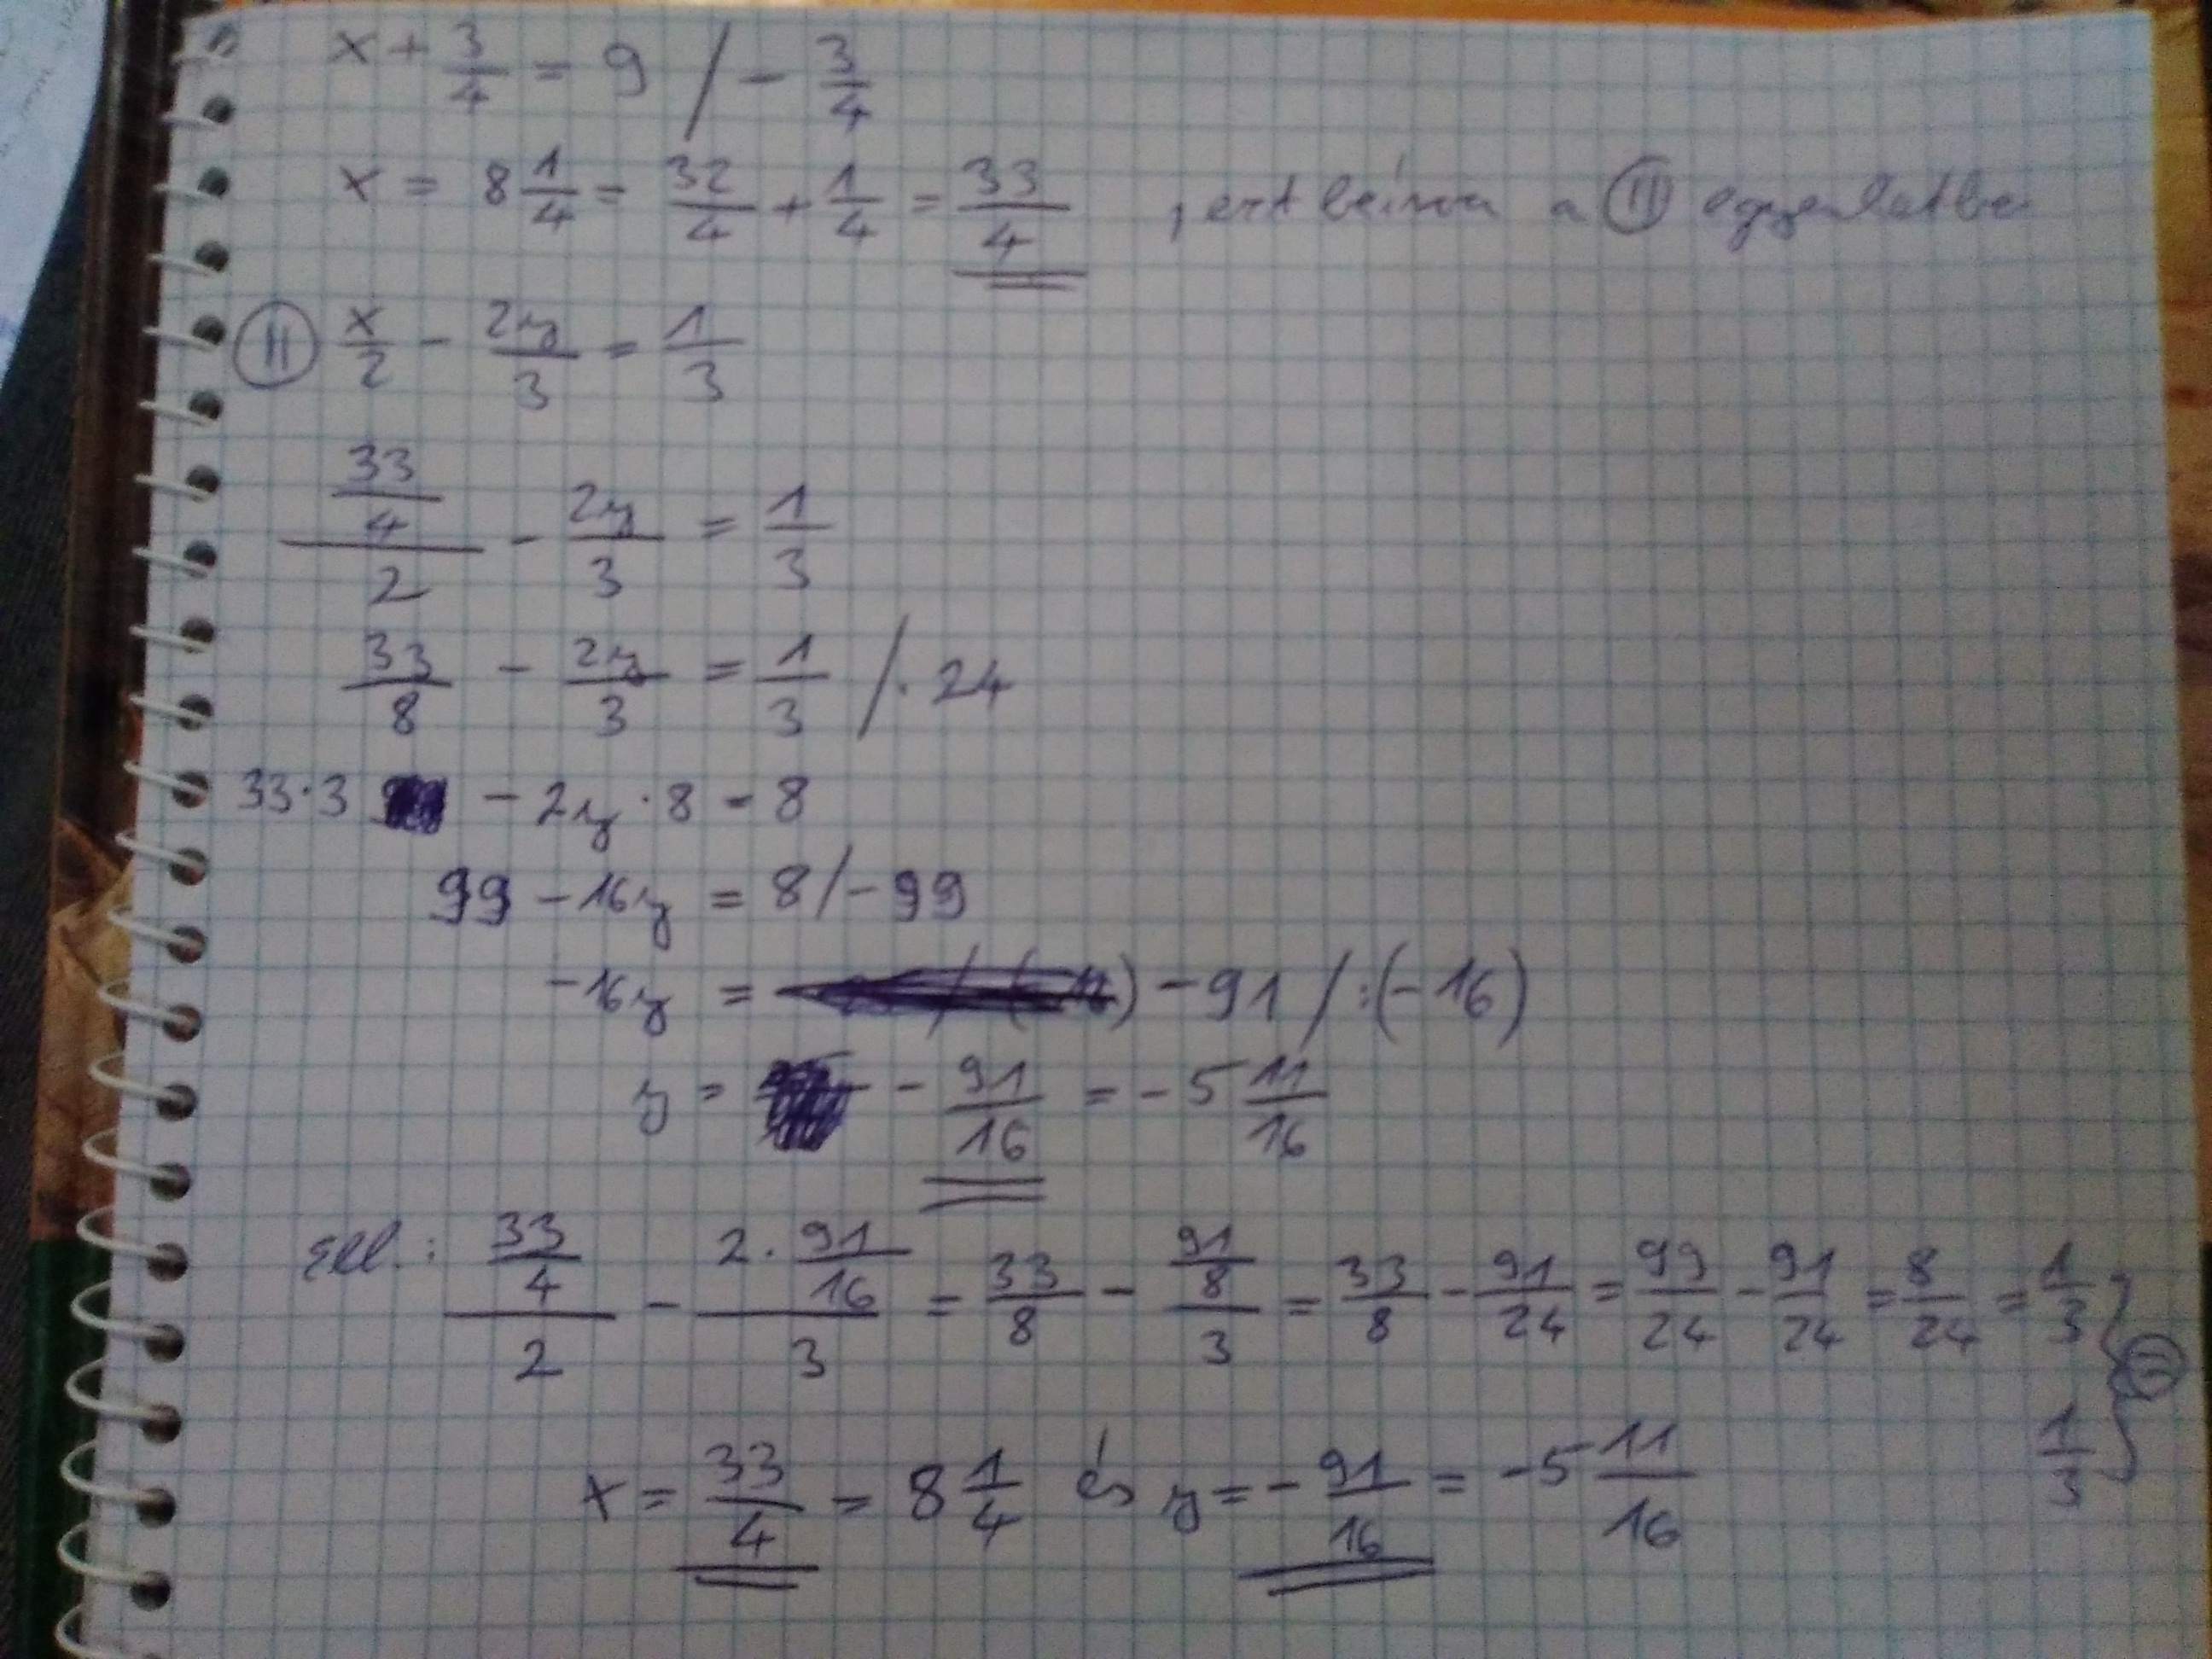 x + 3/4 = 9 / - 3/4
x = 8 1/4 = 32/4 + 1/4 = 33/4 , ezt beírva a II egyenletbe
II x/2 - 2y/3 = 1/3
33/4/2 - 2y/3 = 1/3
33/8 - 2y/3 = 1/3 / · 24
33·3 - 2y·8 = 8
99 - 16y = 8 / - 99
-16y = -91 / :(-16)
y = - 91/16 = -5 11/16
Ell.: 33/4/2 - 2·91/16/3 = 33/8 - 91/8/3 = 33/8 - 91/24 = 99/24 - 91/24 = 8/24 = 1/3
1/3
x = 33/4 = 8 1/4 és y = - 91/16 = -5 11/16